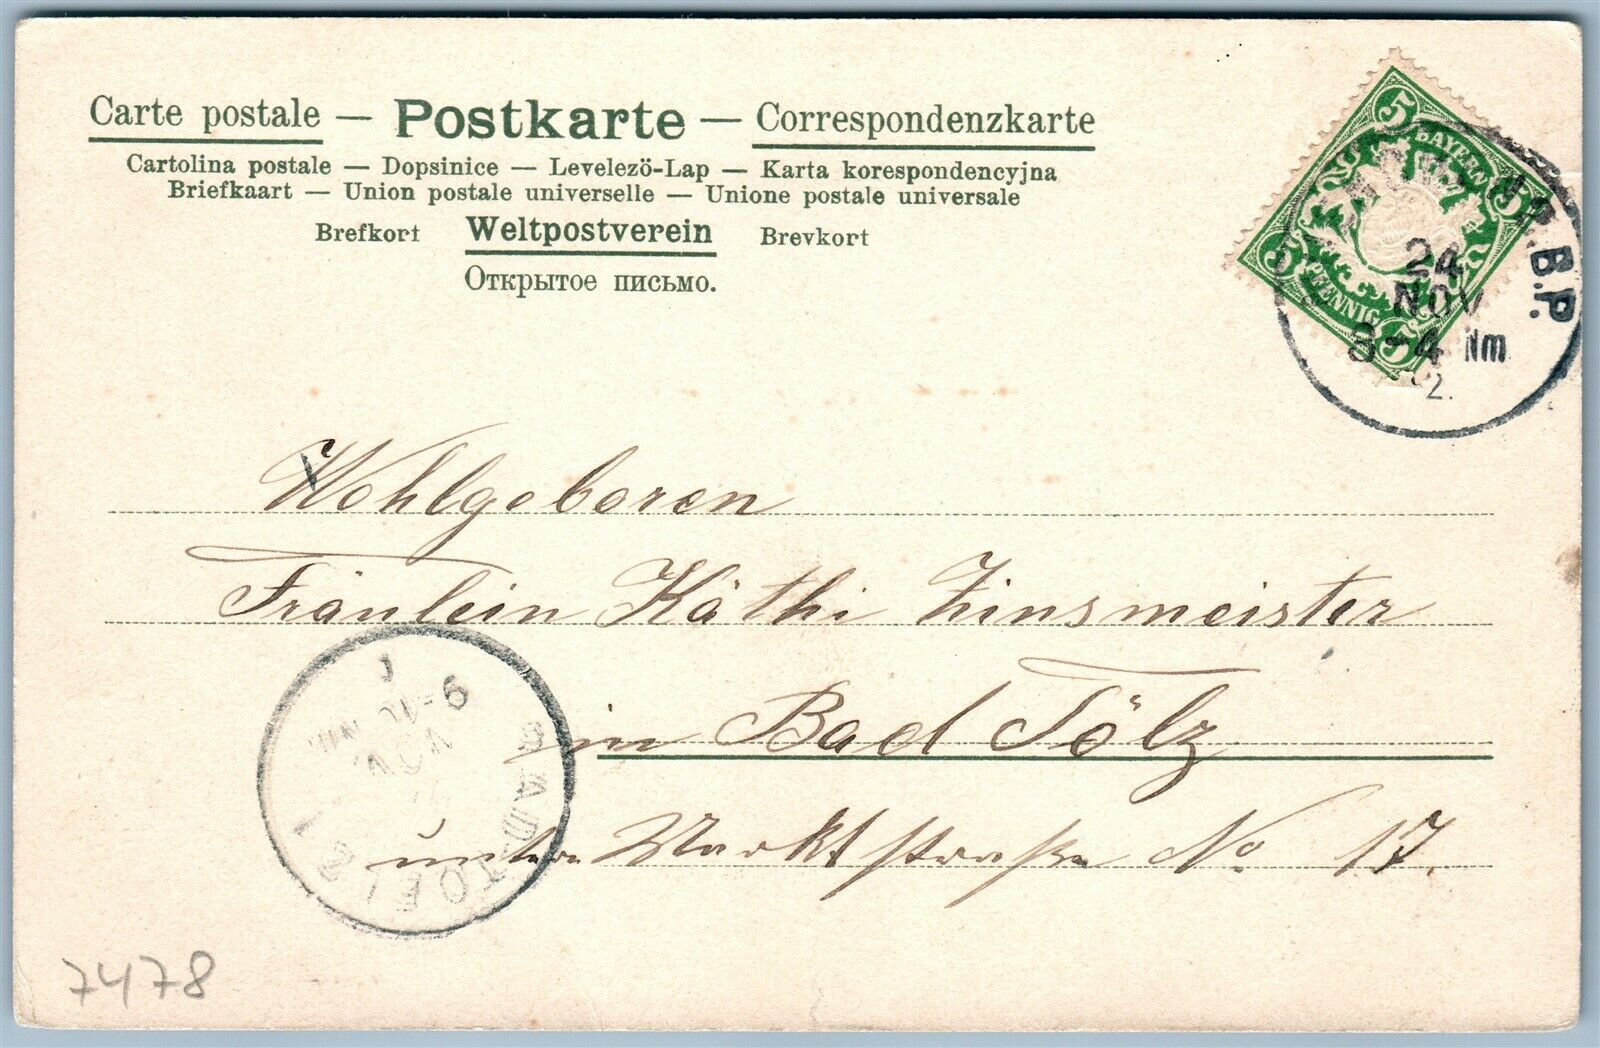 Carte postale — Postkarte — Correspondenzkarte
Cartolina postale — Dopsinice — Levelező-Lap — Karta korespondencyjna
Briefkaart — Union postale universelle — Unione postale universale
Brefkort Weltpostverein Brevkort
Открытое письмо.
5 BAYERN 5
5 PFENNIG 5
B.P.
24
NOV
3-4 Nm
2.
Wohlgeboren
Fräulein Käthi Zinsmeister
in Bad Tölz
untere Marktstraße No 17.
BAD-TOELZ
NOV.
7478